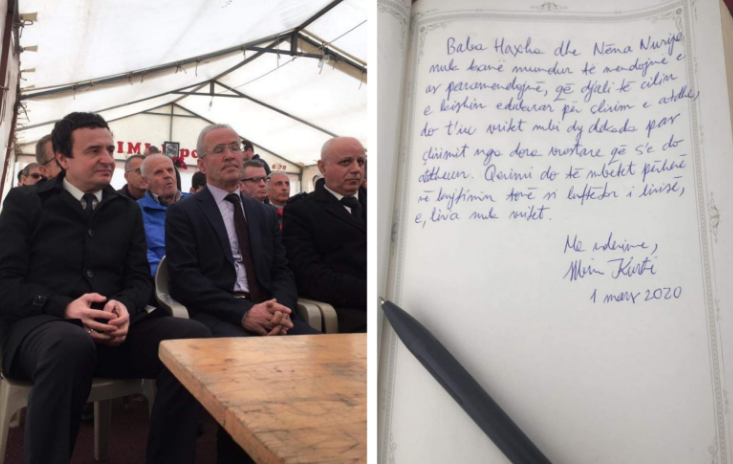 IMI
Baba Haxha dhe Nëna Nurije
nuk kanë mundur të mendojnë e
as paramendojnë, që djali të cilin
e kishin edukuar për clirim e atdhe,
do t'iu vritet mbi dy dekada pas
çlirimit nga dora vrastare që s'e do
. Qerimi do të mbetet përherë
në kujtimin tonë si luftëtar i lirisë,
e, liria nuk vritet.
Me nderime,
Albin Kurti
1 mars 2020